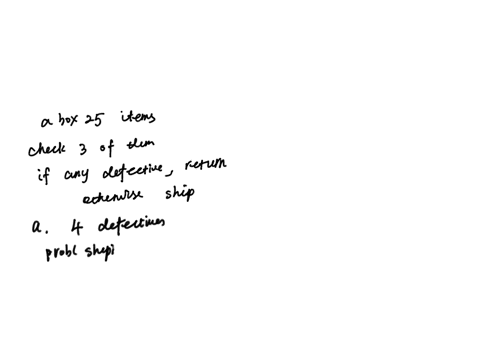 a box 25 items
check 3 of them
if any defective, return
otherwise ship
a. 4 defectives
prob( shipi